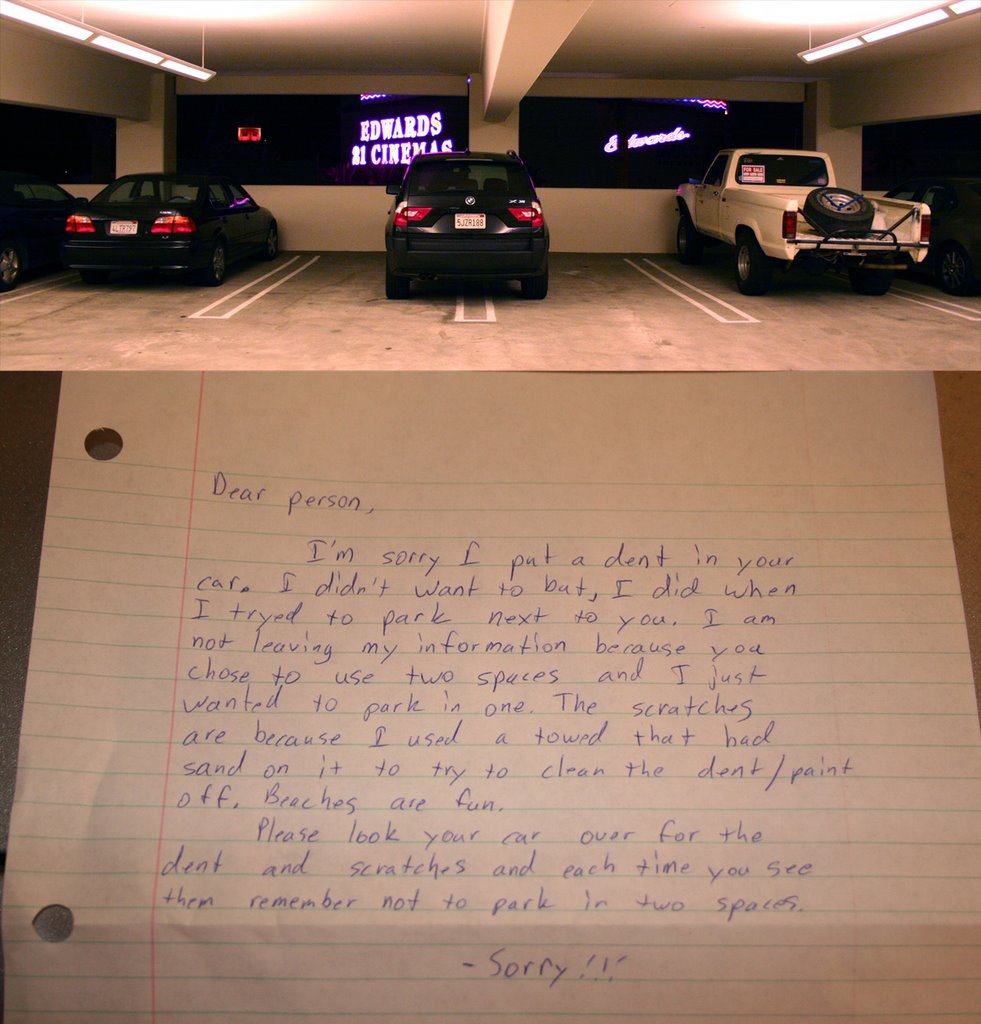 EDWARDS
21 CINEMAS
Edwards
FOR SALE
4LTR797
X3
5JZR188
Dear person,
I'm sorry I put a dent in your
car. I didn't want to but, I did when
I tryed to park next to you. I am
not leaving my information because you
chose to use two spaces and I just
wanted to park in one. The scratches
are because I used a towed that had
sand on it to try to clean the dent/paint
off. Beaches are fun.
Please look your car over for the
dent and scratches and each time you see
them remember not to park in two spaces.
- Sorry!!!